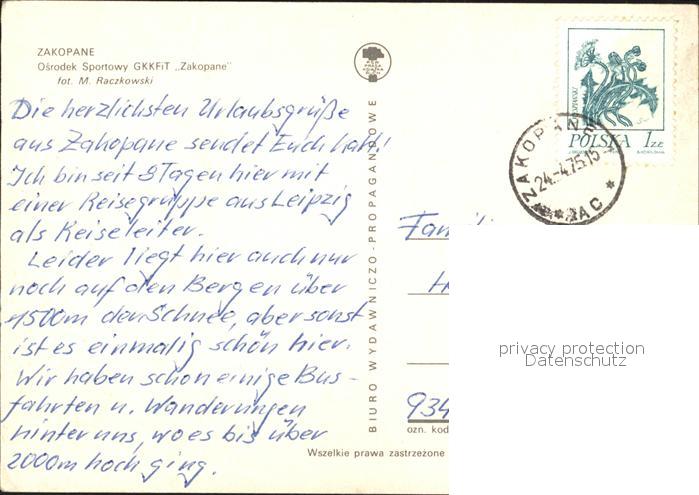 ZAKOPANE
Ośrodek Sportowy GKKFiT „Zakopane"
fot. M. Raczkowski
Die herzlichsten Urlaubsgrüße
aus Zakopane sendet Euch
Ich bin seit 8 Tagen hier mit
einer Reisegruppe aus Leipzig
als Reiseleiter.
Leider liegt hier auch nur
noch auf den Bergen über
1500m der Schnee, aber sonst
ist es einmalig schön hier.
Wir haben schon einige Bus-
fahrten u. Wanderungen
hinter uns, wo es bis über
2000m hoch ging.
BIURO WYDAWNICZO-PROPAGANDOWE
RSW
PRASA
KSIĄŻKA
RUCH
POLSKA 1ZŁ
ZAKOPANE
24.-4.75.15
Fam
934
ozn. kod
Wszelkie prawa zastrzeżone
privacy protection
Datenschutz